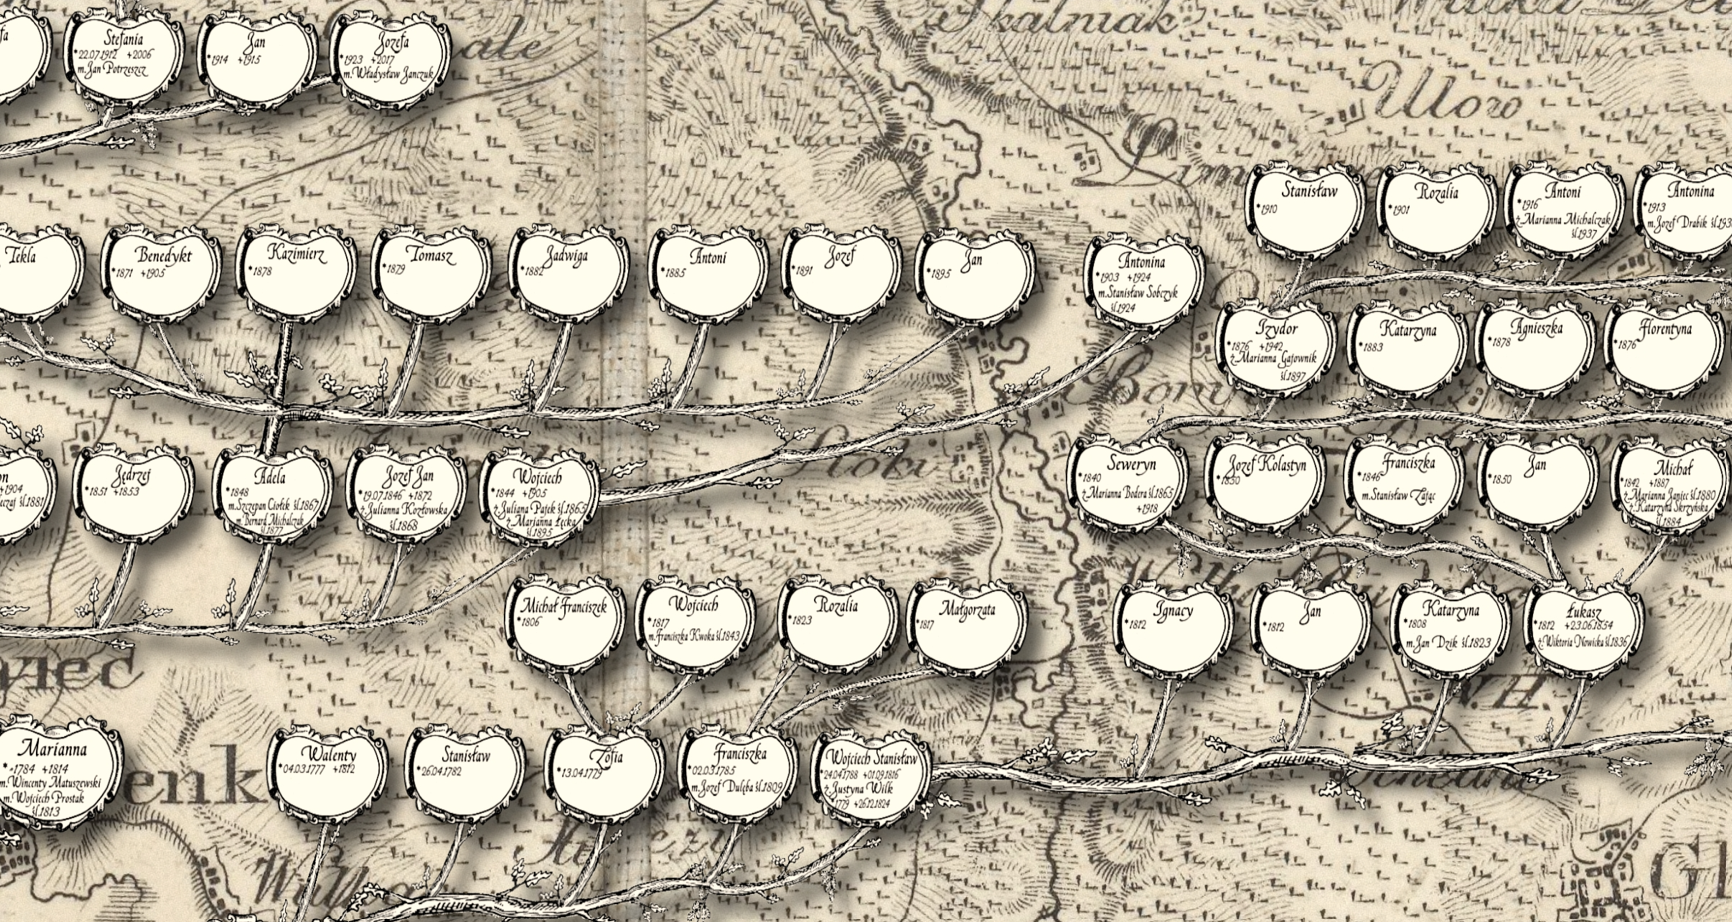 Stefania
*22.07.1912 +2006
m.Jan Potrzeszcz
Jan
*1914 +1915
Jozefa
*1923 +2017
m.Władysław Janczuk
Skalniak
Ulow
Stanisław
*1910
Rozalia
*1901
Antoni
*1916
ż.Marianna Michalczak
śl.1937
Antonina
*1913
m.Jozef Drabik śl.193
Tekla
Benedykt
*1871 +1905
Kazimierz
*1878
Tomasz
*1879
Jadwiga
*1882
Antoni
*1885
Jozef
*1891
Jan
*1895
Antonina
*1903 +1924
m.Stanisław Sobczyk
śl.1924
Izydor
*1876 +1942
ż.Marianna Gajownik
śl.1897
Katarzyna
*1883
Agnieszka
*1878
Florentyna
*1876
on
+1904
śl.1881
Jędrzej
*1851 +1853
Adela
*1848
m.Szczepan Ciołek śl.1867
m.Bernard Michalczak
śl.1877
Jozef Jan
*19.07.1846 +1872
ż.Julianna Kozłowska
śl.1868
Wojciech
*1844 +1905
ż.Marianna Łęcka
śl.1895
Seweryn
*1840
ż.Marianna Bodera śl.1865
+1918
Jozef Kolastyn
*1830
Franciszka
*1846
m.Stanisław Zając
Jan
*1850
Michał
*1842 +1887
ż.Marianna Janiec śl.1880
ż.Katarzyna Skrzyńska
śl.1884
Michał Franciszek
*1806
Wojciech
*1817
m.Franciszka Kwoka śl.1843
Rozalia
*1823
Małgorzata
*1817
Ignacy
*1812
Jan
*1812
Katarzyna
*1808
m.Jan Dzik śl.1823
Łukasz
*1812 +23.06.1854
ż.Wiktoria Nowicka śl.1836
Marianna
*~1784 +1814
m.Wincenty Matuszewski
m.Wojciech Prostak
śl.1813
Walenty
*04.03.1777 +1812
Stanisław
*26.04.1782
Zofia
*13.04.1779
Franciszka
*02.03.1785
m.Jozef Dulęba śl.1809
Wojciech Stanisław
*24.04.1788 +01.09.1816
ż.Justyna Wilk
*1779 +26.12.1824
enk
Gl